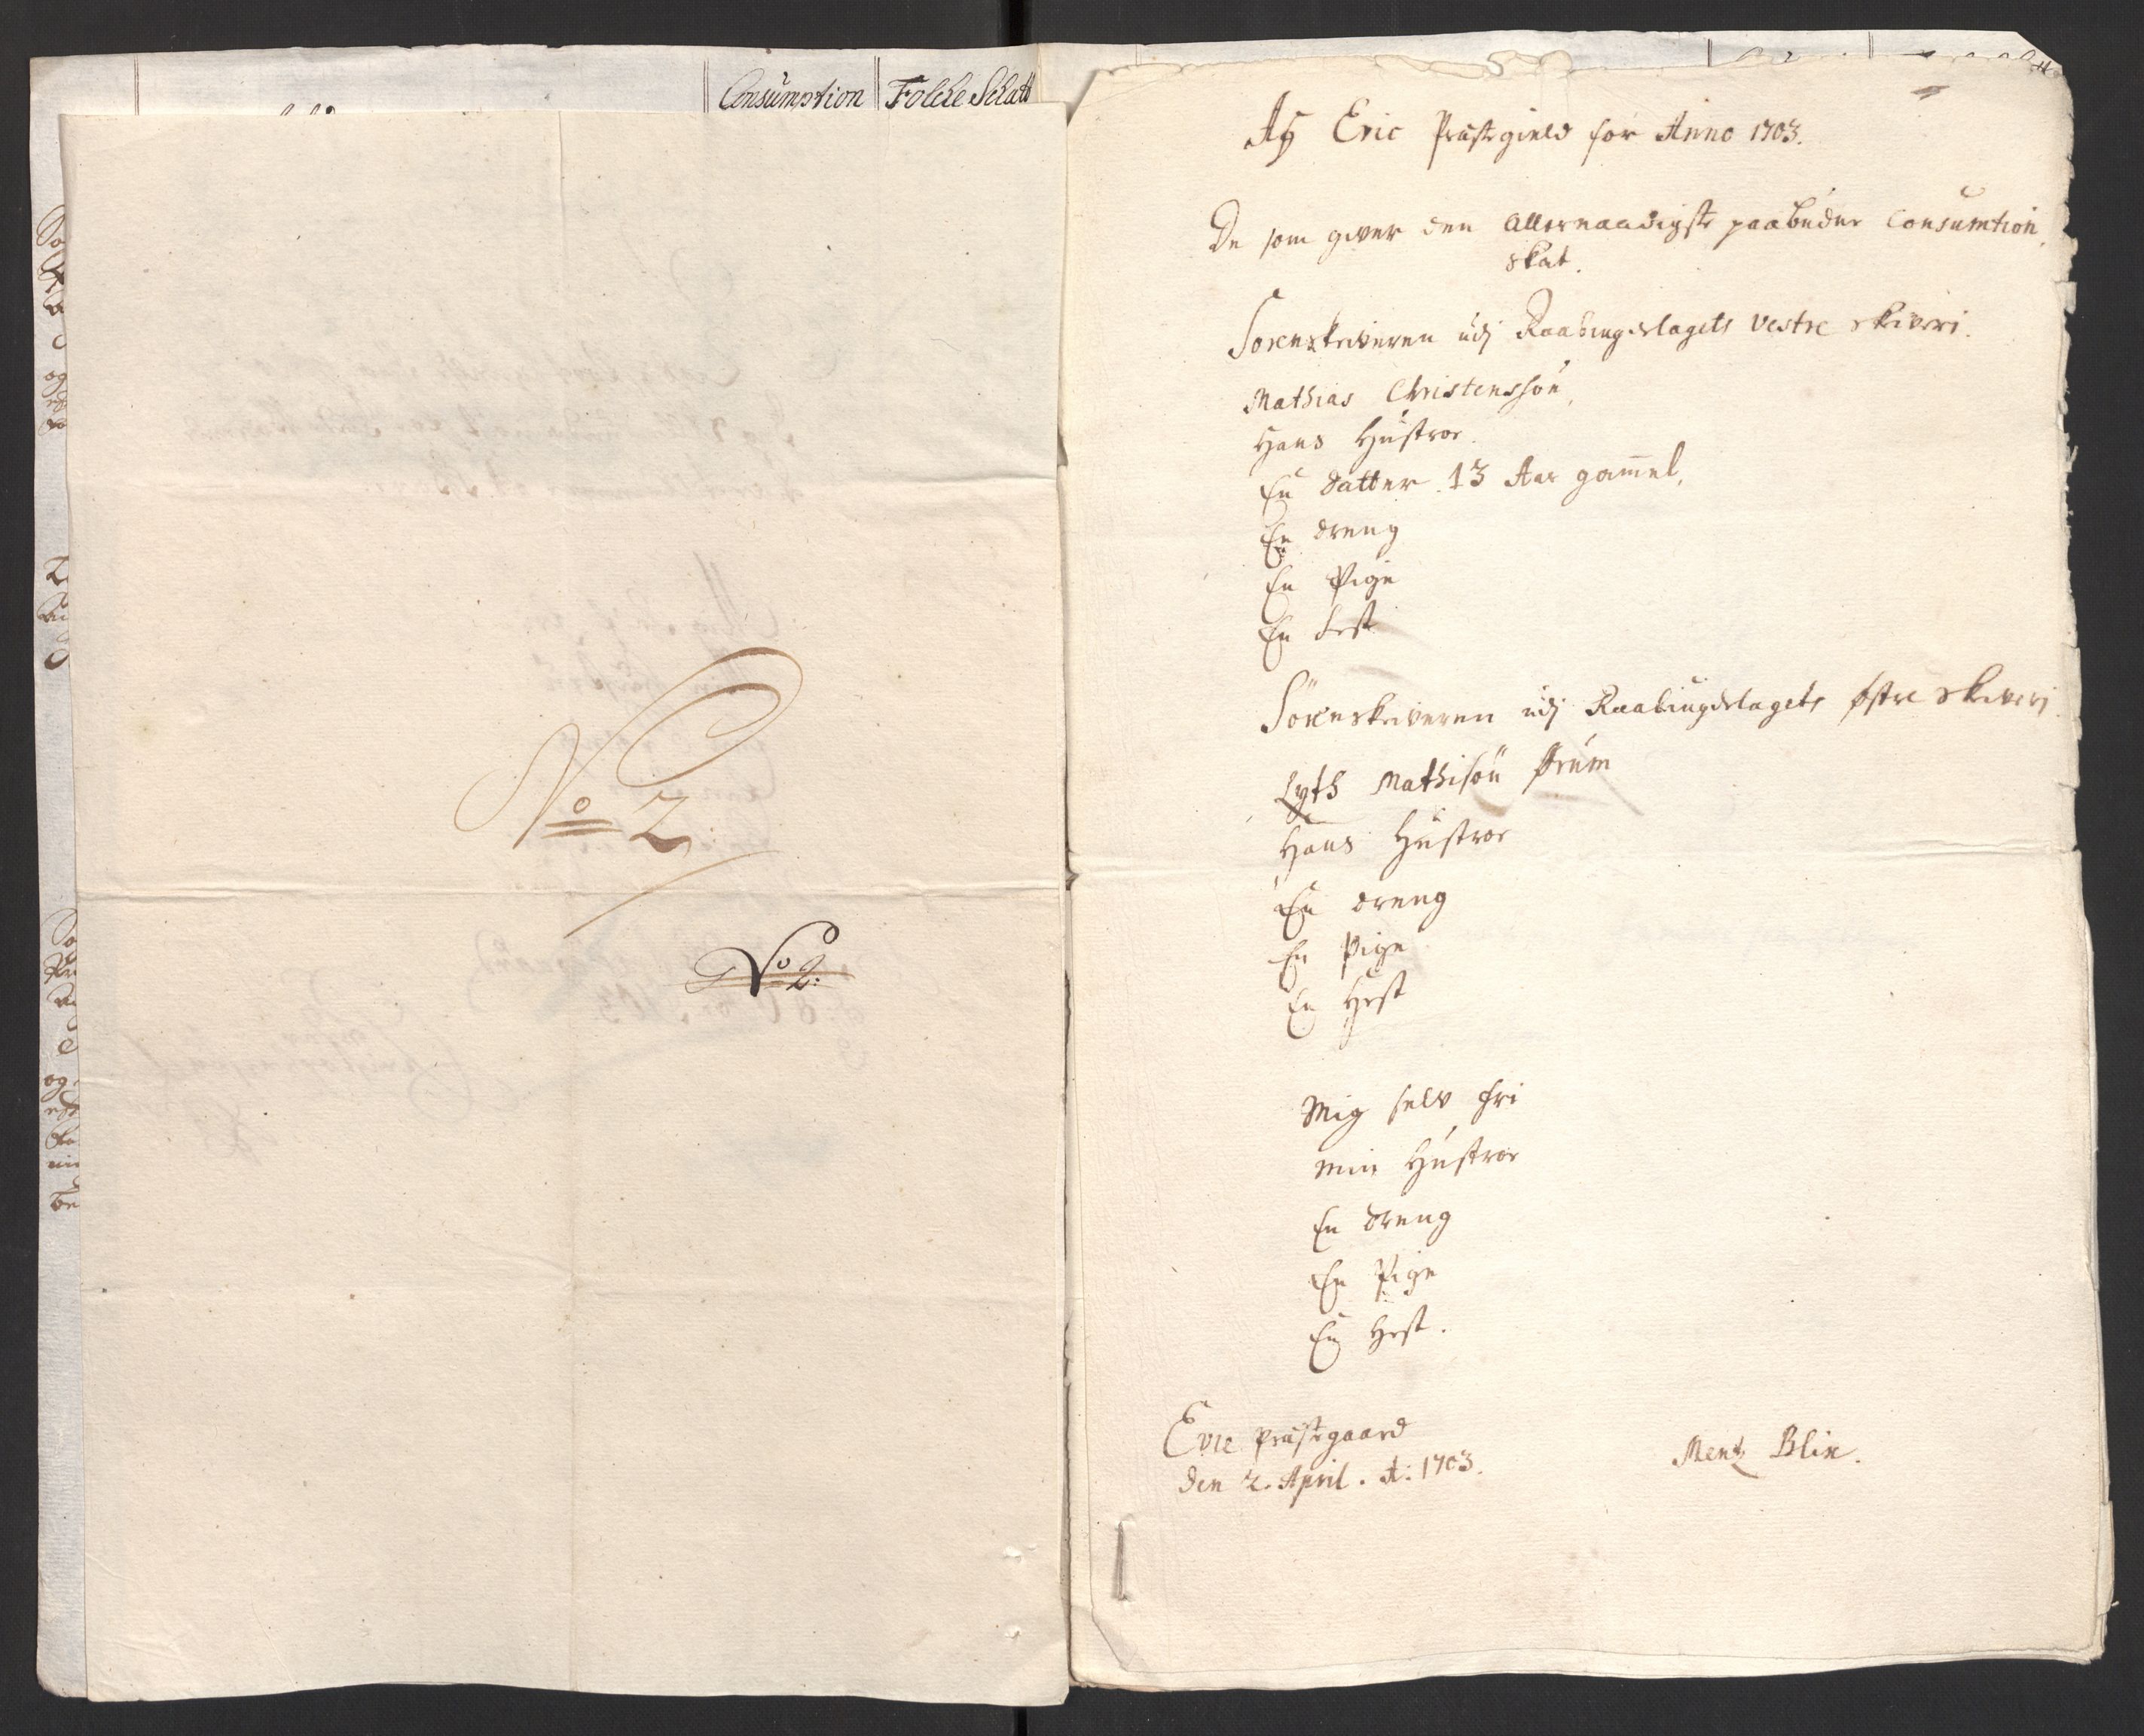 Consumption Folcke Schatt
No 2
No 2:
Aff Evie Præstegield for Anno 1703.
De som giver den Allernaadigste paabudne Consumtion
skat.
Sorenskriveren udj Raabiugdelagets Vestre skiveri.
Mathias Christenssøn,
Hans Hustroe.
En datter 13 Aar gam̃el,
En dreng
En Pige
En Hest
Sorenskriveren udj Raabiugdelagets østre skiveri.
Mathisøn Ørum
Hans Hustroe
En dreng
En Pige
En Hest
Mig selv fri
min Hustroe
En dreng
En Pige
En Hest.
Evie præstegaard
den 2. April. A: 1703.
Mentz Blix.